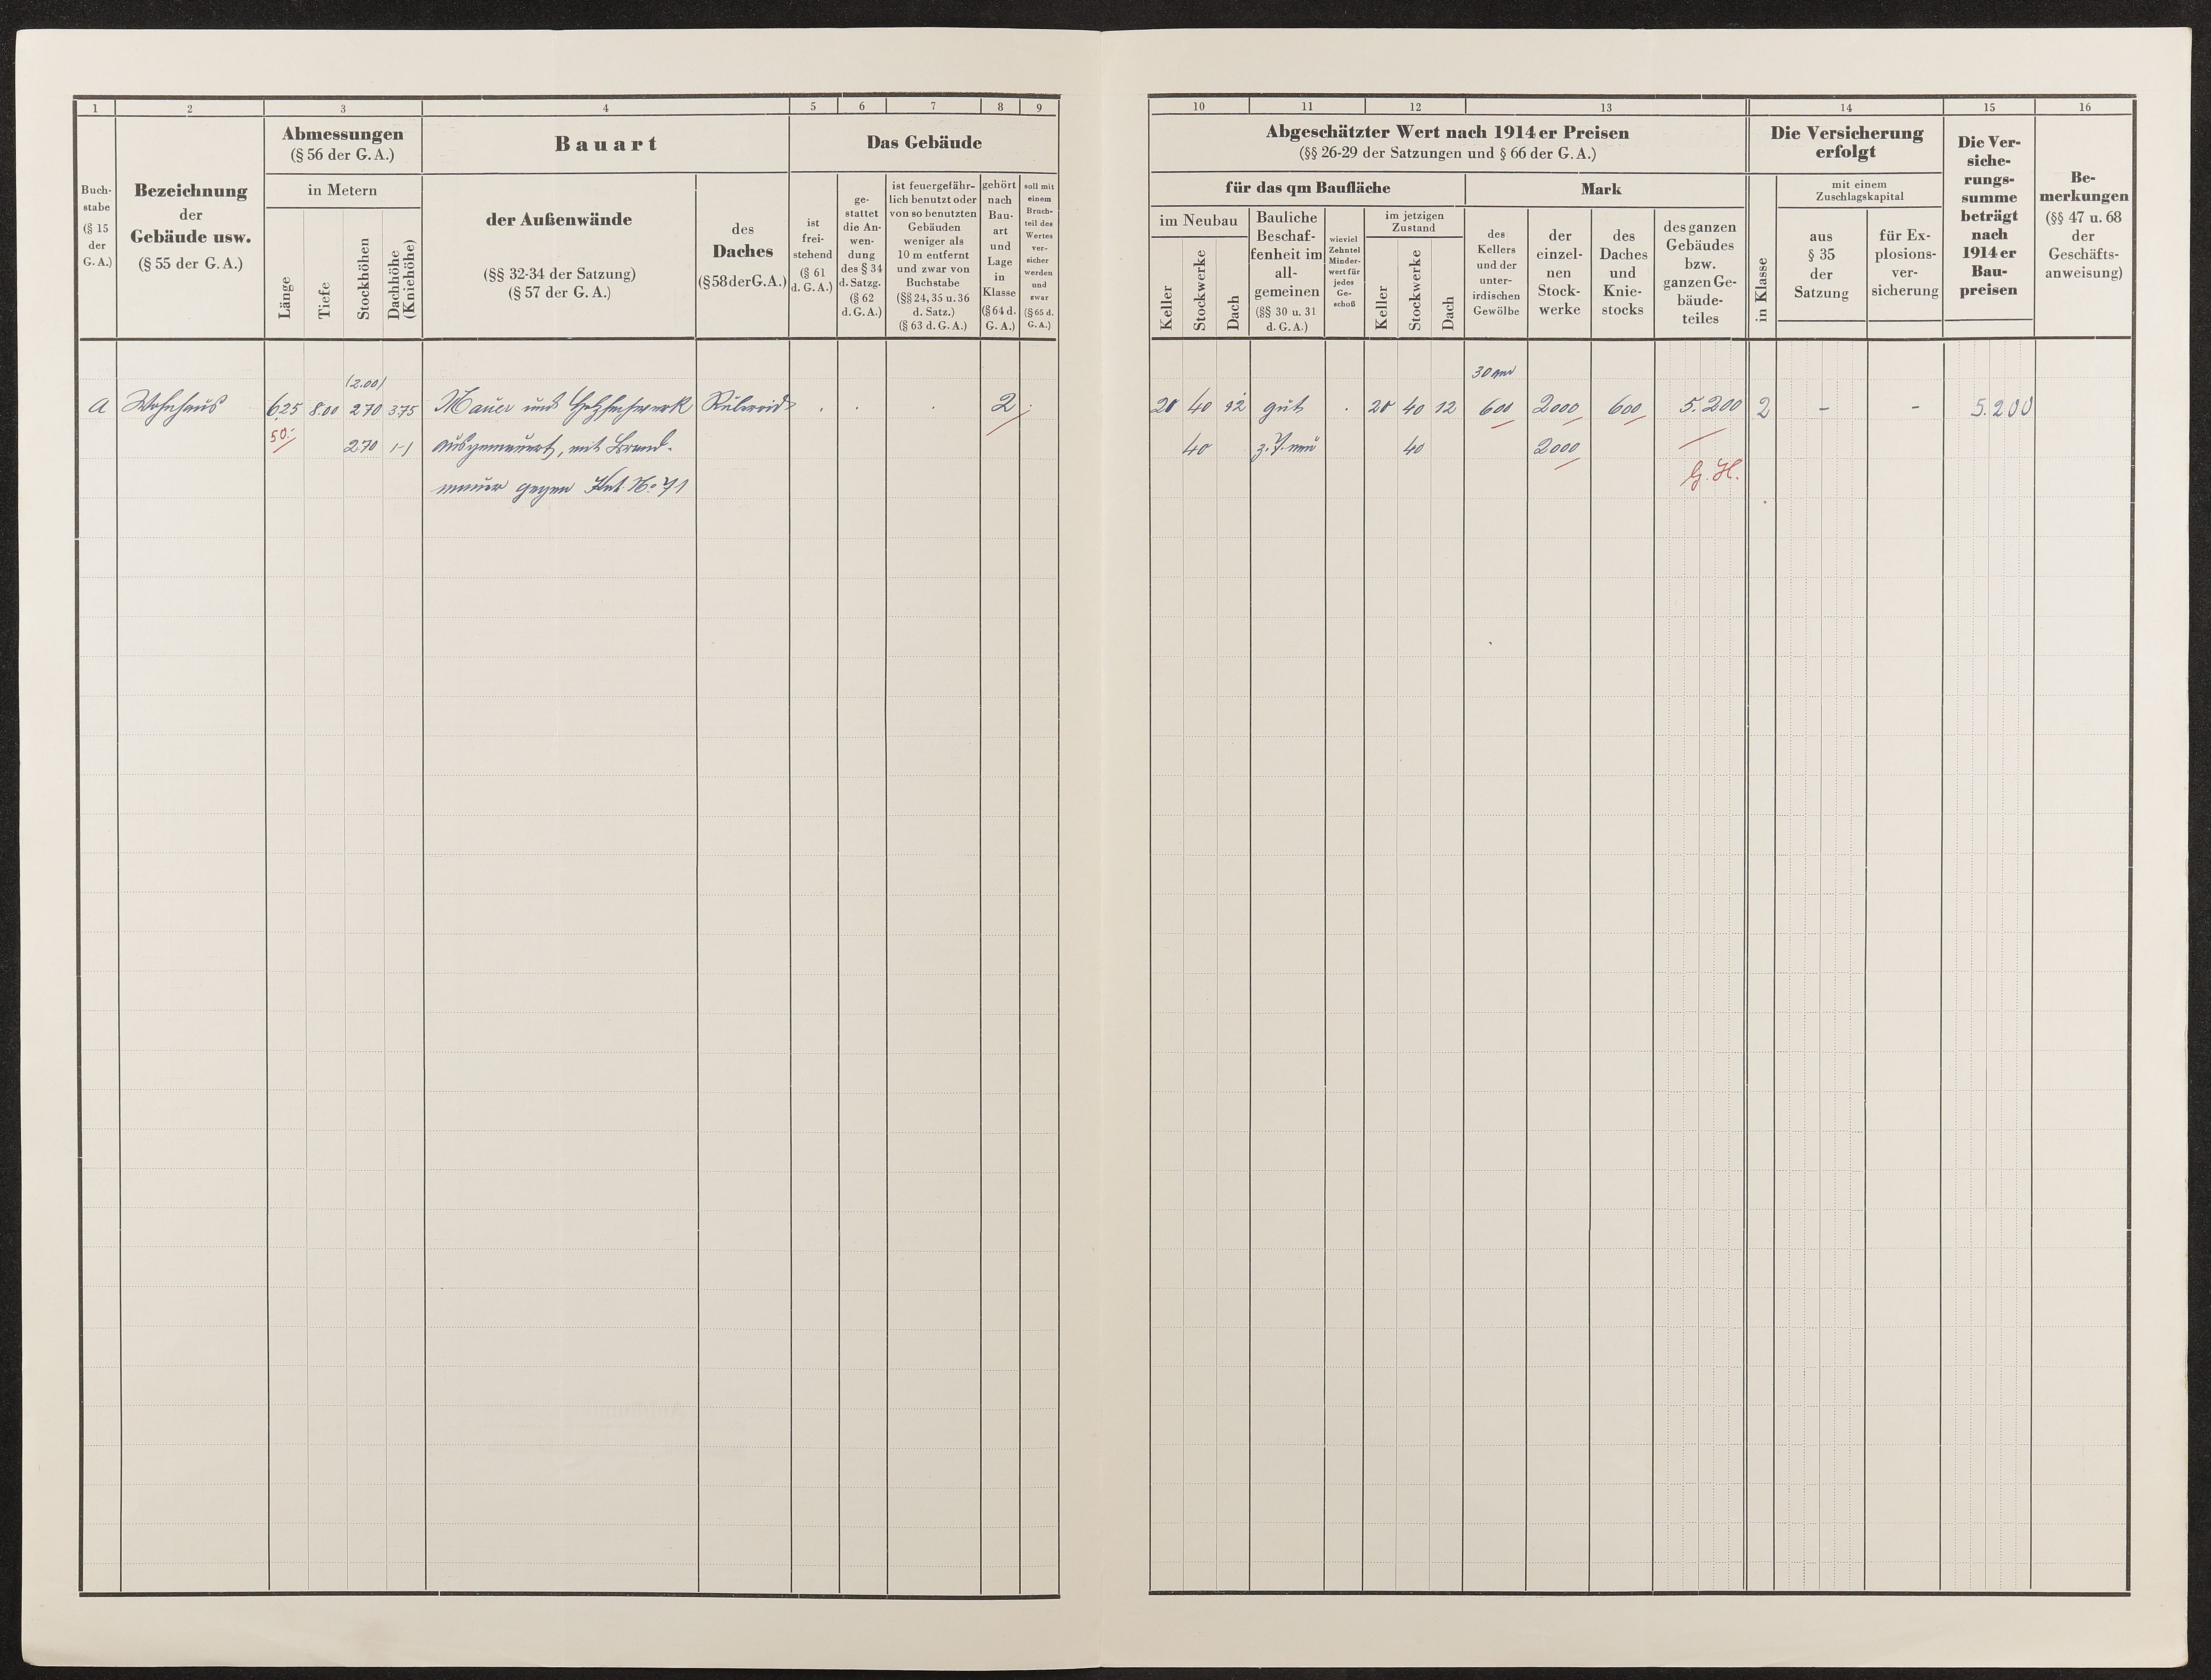 1 2 3 4 5 6 7 8 9
Buch-
stabe
(§ 15
der
G. A.)
Bezeichnung
der
Gebäude usw.
(§ 55 der G. A.)
Abmessungen
(§ 56 der G. A.)
in Metern
Länge
Tiefe
Stockhöhen
Dachhöhe
(Kniehöhe)
Bauart
der Außenwände
(§§ 32-34 der Satzung)
(§ 57 der G. A.)
des
Daches
(§ 58 der G. A.)
Das Gebäude
ist
frei-
stehend
(§ 61
d. G. A.)
ge-
stattet
die An-
wen-
dung
des § 34
d. Satzg.
(§ 62
d. G. A.)
ist feuergefähr-
lich benutzt oder
von so benutzten
Gebäuden
weniger als
10 m entfernt
und zwar von
Buchstabe
(§§ 24, 35 u. 36
d. Satz.)
(§ 63 d. G. A.)
gehört
nach
Bau-
art
und
Lage
in
Klasse
(§ 64 d.
G. A.)
soll mit
einem
Bruch-
teil des
Wertes
ver-
sicher
werden
und
zwar
(§ 65 d.
G. A.)
(2.00)
A Wohnhaus 6,25 8.00 2.70 3.75 Mauer und Holzfachwerk Ruberoid . . . 2 .
50.- 2.70 (-) ausgemauert, mit Brand-
mauer gegen Kat. No 71
10 11 12 13 14 15 16
Abgeschätzter Wert nach 1914er Preisen
(§§ 26-29 der Satzungen und § 66 der G. A.)
für das qm Baufläche
im Neubau
Keller
Stockwerke
Dach
Bauliche
Beschaf-
fenheit im
all-
gemeinen
(§§ 30 u. 31
d. G. A.)
wieviel
Zehntel
Minder-
wert für
jedes
Ge-
schoß
im jetzigen
Zustand
Keller
Stockwerke
Dach
Mark
des
Kellers
und der
unter-
irdischen
Gewölbe
der
einzel-
nen
Stock-
werke
des
Daches
und
Knie-
stocks
des ganzen
Gebäudes
bzw.
ganzen Ge-
bäude-
teiles
Die Versicherung
erfolgt
in Klasse
mit einem
Zuschlagskapital
aus
§ 35
der
Satzung
für Ex-
plosions-
ver-
sicherung
Die Ver-
siche-
rungs-
summe
beträgt
nach
1914er
Bau-
preisen
Be-
merkungen
(§§ 47 u. 68
der
Geschäfts-
anweisung)
30 qm
20 40 12 gut . 20 40 12 600 2000 600 5.200 2 - - 5.200
40 z. T. neu 40 2000
G. H.